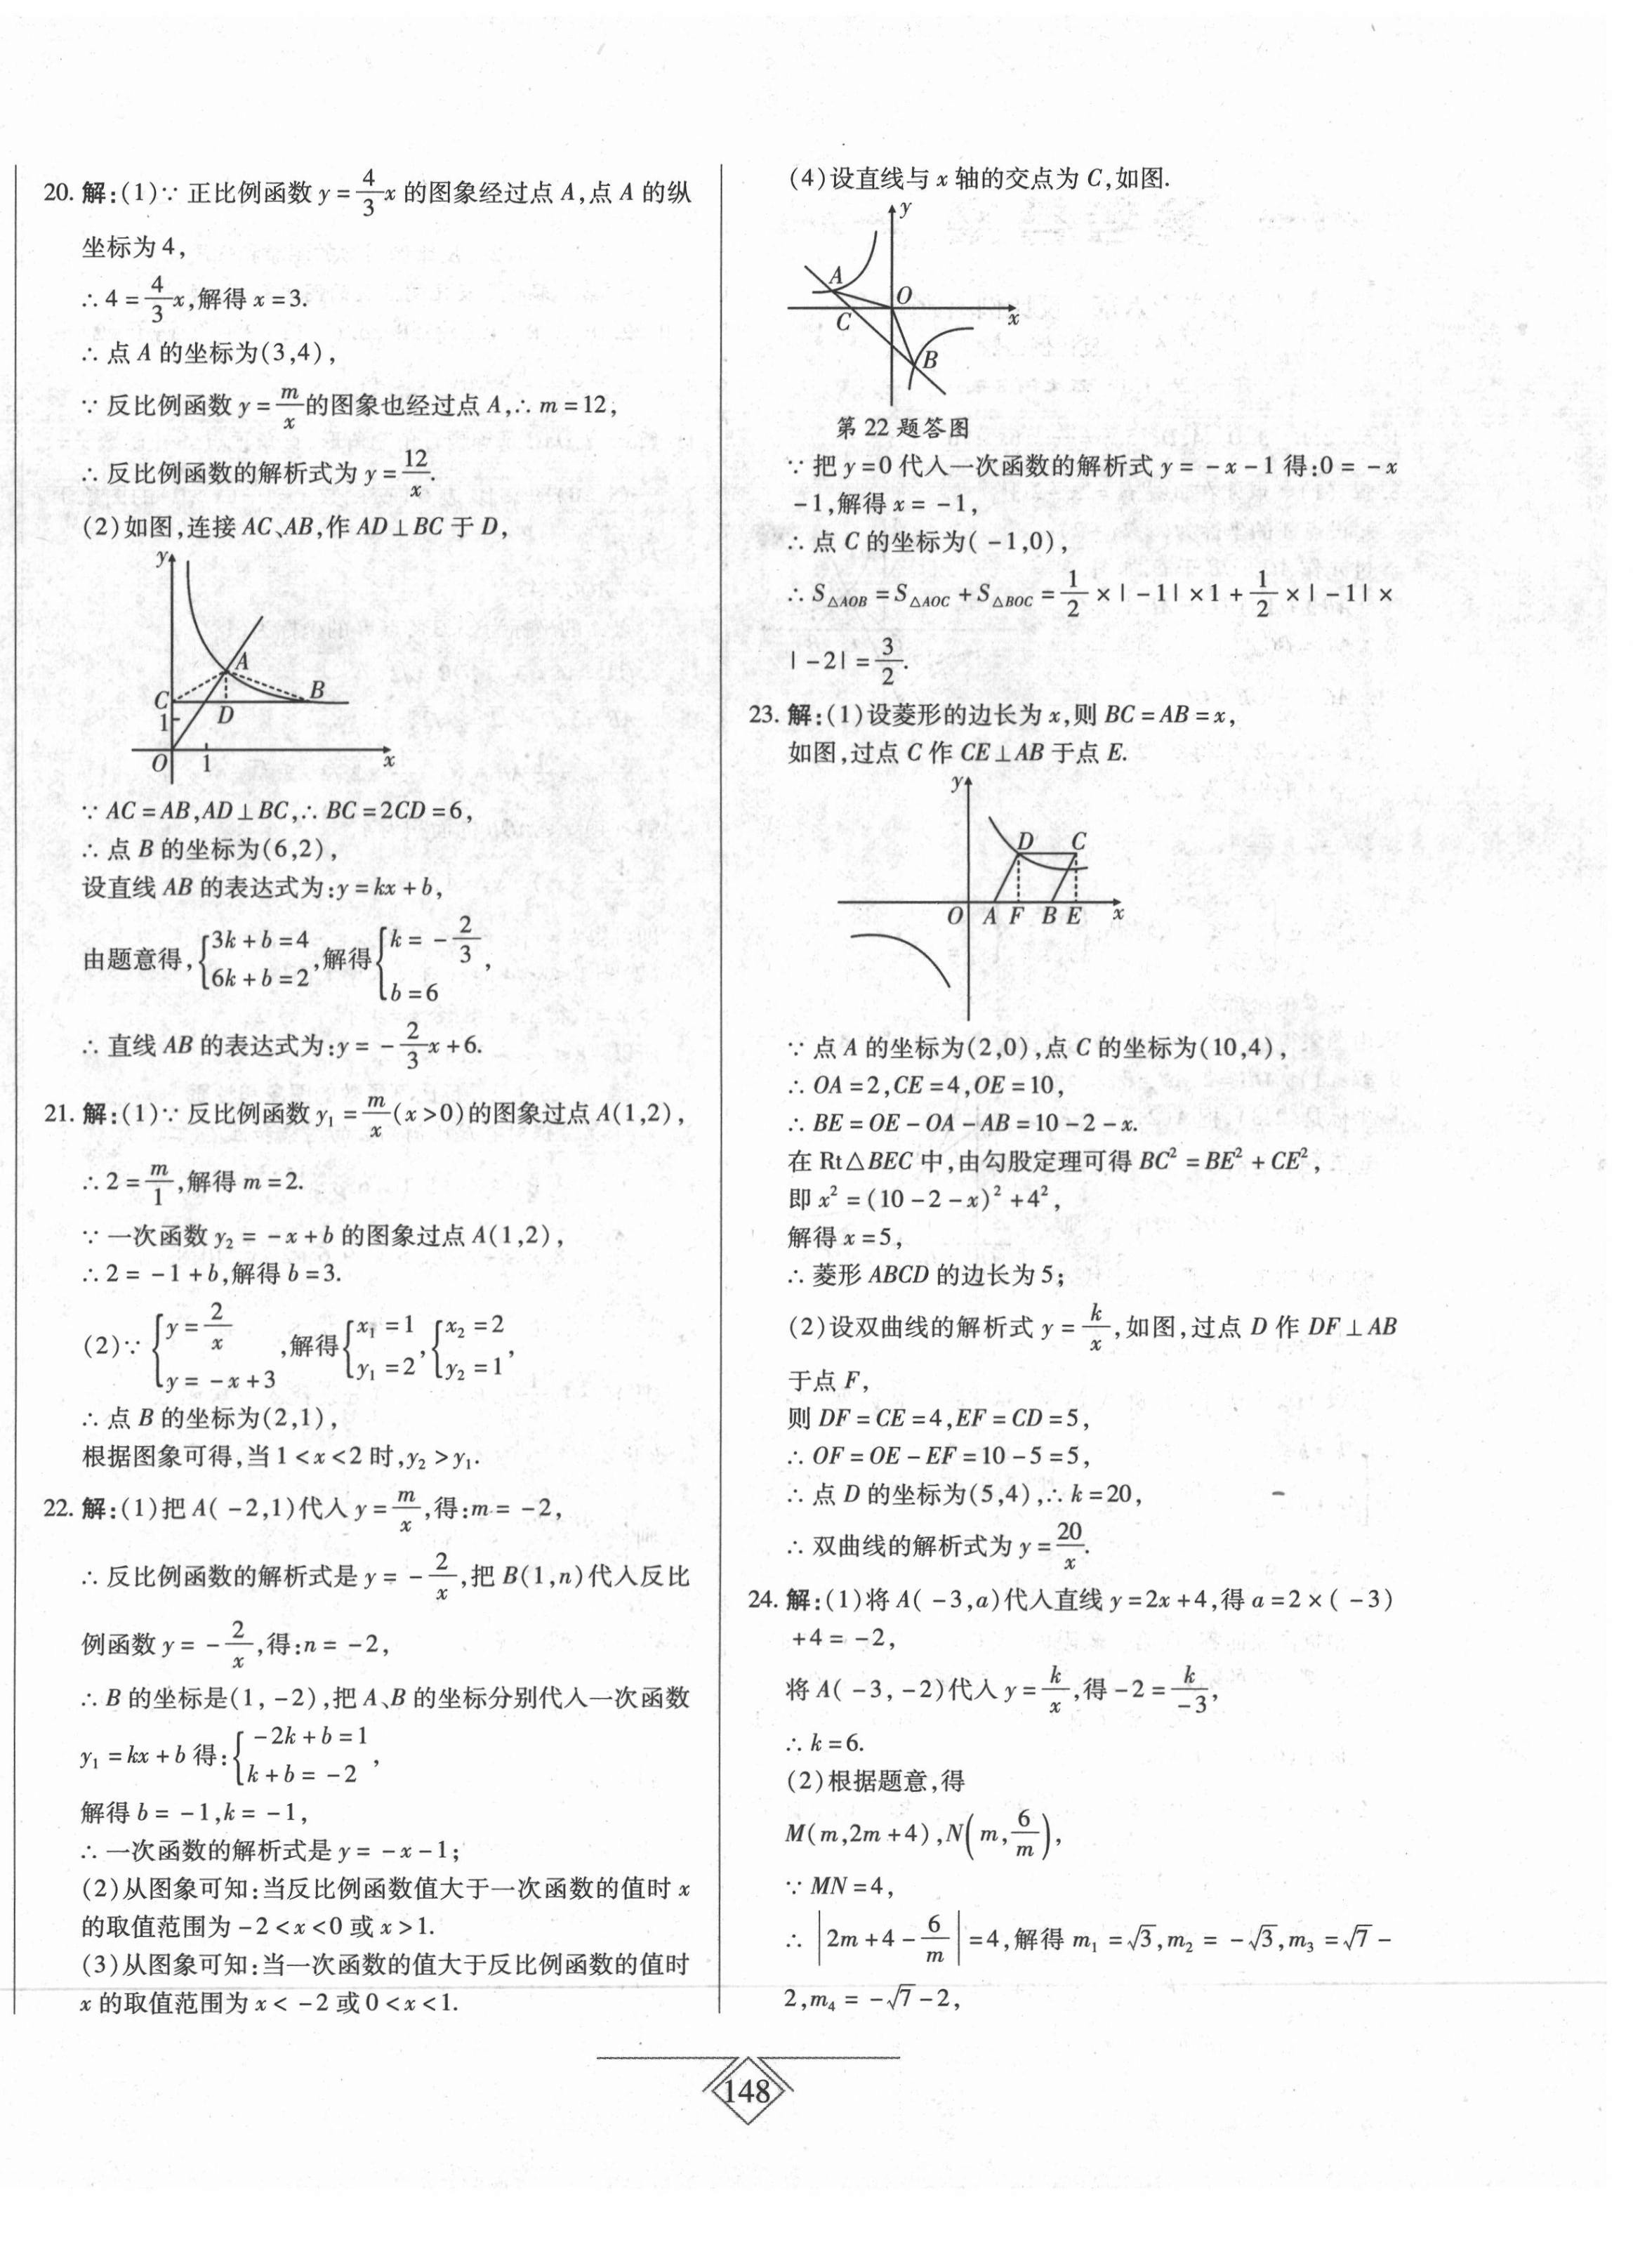 20. 解:(1)∵ 正比例函数 y = 4/3 x 的图象经过点 A,点 A 的纵
坐标为 4,
∴ 4 = 4/3 x,解得 x = 3.
∴ 点 A 的坐标为(3,4),
∵ 反比例函数 y = m/x 的图象也经过点 A,∴ m = 12,
∴ 反比例函数的解析式为 y = 12/x.
(2)如图,连接 AC、AB,作 AD⊥BC 于 D,
y
A
C
B
1
D
O
1
x
∵ AC = AB,AD⊥BC,∴ BC = 2CD = 6,
∴ 点 B 的坐标为(6,2),
设直线 AB 的表达式为:y = kx + b,
由题意得,{3k + b = 4, 6k + b = 2,解得{k = -2/3, b = 6,
∴ 直线 AB 的表达式为:y = -2/3 x + 6.
21. 解:(1)∵ 反比例函数 y₁ = m/x (x > 0)的图象过点 A(1,2),
∴ 2 = m/1,解得 m = 2.
∵ 一次函数 y₂ = -x + b 的图象过点 A(1,2),
∴ 2 = -1 + b,解得 b = 3.
(2)∵ {y = 2/x, y = -x + 3,解得{x₁ = 1, y₁ = 2,{x₂ = 2, y₂ = 1,
∴ 点 B 的坐标为(2,1),
根据图象可得,当 1 < x < 2 时,y₂ > y₁.
22. 解:(1)把 A(-2,1)代入 y = m/x,得:m = -2,
∴ 反比例函数的解析式是 y = -2/x,把 B(1,n)代入反比
例函数 y = -2/x,得:n = -2,
∴ B 的坐标是(1,-2),把 A、B 的坐标分别代入一次函数
y₁ = kx + b 得:{-2k + b = 1, k + b = -2,
解得 b = -1,k = -1,
∴ 一次函数的解析式是 y = -x - 1;
(2)从图象可知:当反比例函数值大于一次函数的值时 x
的取值范围为 -2 < x < 0 或 x > 1.
(3)从图象可知:当一次函数的值大于反比例函数的值时
x 的取值范围为 x < -2 或 0 < x < 1.
(4)设直线与 x 轴的交点为 C,如图.
y
A
O
C
x
B
第 22 题答图
∵ 把 y = 0 代入一次函数的解析式 y = -x - 1 得:0 = -x
-1,解得 x = -1,
∴ 点 C 的坐标为(-1,0),
∴ S△AOB = S△AOC + S△BOC = 1/2 × |-1| × 1 + 1/2 × |-1| ×
|-2| = 3/2.
23. 解:(1)设菱形的边长为 x,则 BC = AB = x,
如图,过点 C 作 CE⊥AB 于点 E.
y
D C
O A F B E x
∵ 点 A 的坐标为(2,0),点 C 的坐标为(10,4),
∴ OA = 2,CE = 4,OE = 10,
∴ BE = OE - OA - AB = 10 - 2 - x.
在 Rt△BEC 中,由勾股定理可得 BC² = BE² + CE²,
即 x² = (10 - 2 - x)² + 4²,
解得 x = 5,
∴ 菱形 ABCD 的边长为 5;
(2)设双曲线的解析式 y = k/x,如图,过点 D 作 DF⊥AB
于点 F,
则 DF = CE = 4,EF = CD = 5,
∴ OF = OE - EF = 10 - 5 = 5,
∴ 点 D 的坐标为(5,4),∴ k = 20,
∴ 双曲线的解析式为 y = 20/x.
24. 解:(1)将 A(-3,a)代入直线 y = 2x + 4,得 a = 2 × (-3)
+4 = -2,
将 A(-3,-2)代入 y = k/x,得 -2 = k/-3,
∴ k = 6.
(2)根据题意,得
M(m,2m + 4),N(m,6/m),
∵ MN = 4,
∴ |2m + 4 - 6/m| = 4,解得 m₁ = √3,m₂ = -√3,m₃ = √7 -
2,m₄ = -√7 - 2,
148